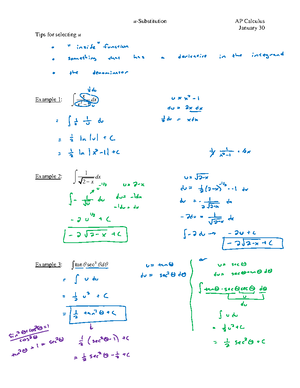 u-Substitution
AP Calculus
January 30
Tips for selecting u
• "inside" function
• something that has a derivative in the integrand
• the denominator
Example 1:
u = x² - 1
du = 2x dx
½ du = x dx
= ∫ ½ · 1/u du
= ½ ln |u| + C
= ½ ln |x² - 1| + C
Example 2: ∫ 1/√(2-x) dx
u = 2-x
du = -1dx
-1du = dx
= -2u^(1/2) + C
= -2√(2-x) + C
u = √(2-x)
du = ½(2-x)^(-1/2) · -1 dx
∫ -2 du → -2u + C
-2√(2-x) + C
Example 3: ∫ tan θ sec² θ dθ
u = tan θ
du = sec² θ dθ
= ∫ u du
= ½ u² + C
= ½ tan² θ + C
or
u = sec θ
du = sec θ tan θ dθ
∫ tan θ · sec θ sec θ dθ
∫ u du
= ½ u² + C
= ½ sec² θ + C
tan² θ + 1 = sec² θ
½ (sec² θ - 1) + C
= ½ sec² θ - ½ + C